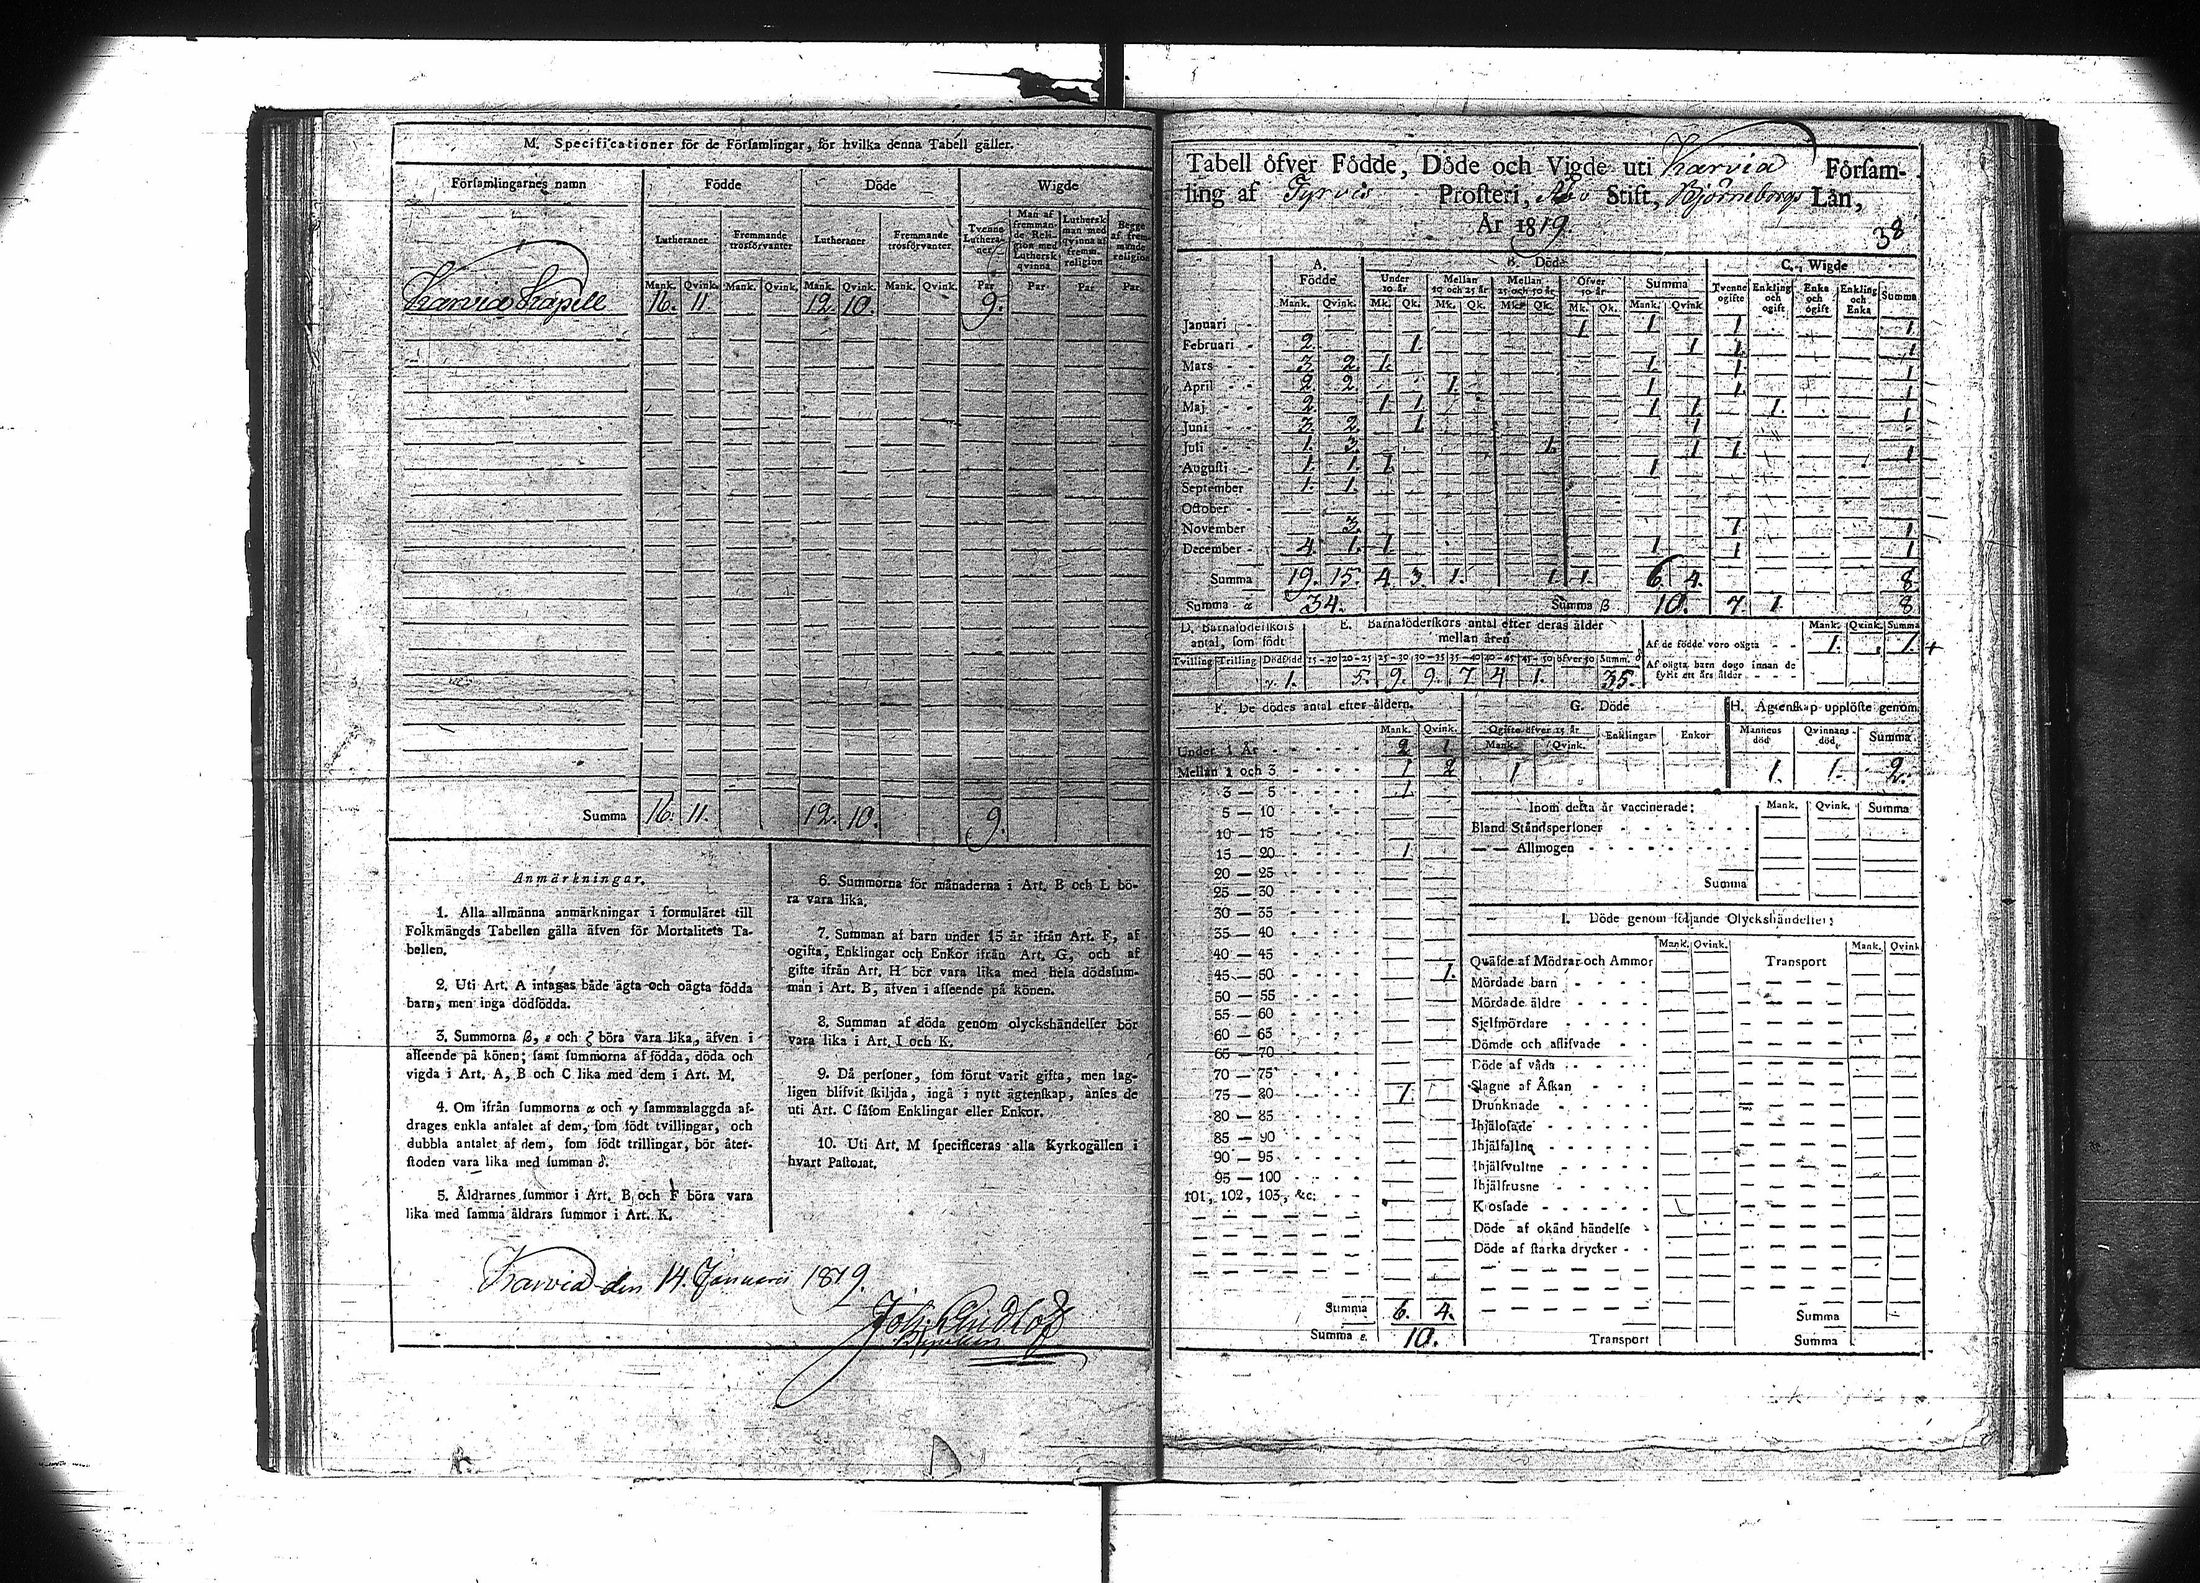 M. Specificationer för de Församlingar, för hvilka denna Tabell gäller.
Församlingarnes namn Födde Döde Wigde
Lutheraner Fremmande trosförvanter Lutheraner Fremmande trosförvanter Tvenne Lutheraner Man af fremmande Religion med Luthersk qvinna Luthersk man med qvinna af fremm. religion Begge af fremmande religion
Mank. Qvink. Mank. Qvink. Mank. Qvink. Mank. Qvink. Par Par Par Par
Karvia Kapell 16. 11. 12. 10. 9.
Summa 16. 11. 12. 10. 9.
Anmärkningar.
1. Alla allmänna anmärkningar i formuläret till
Folkmängds Tabellen gälla äfven för Mortalitets Ta-
bellen.
2. Uti Art. A intagas både ägta och oägta födda
barn, men inga dödfödda.
3. Summorna β, ε och ζ böra vara lika, äfven i
afseende på könen; samt summorna af födda, döda och
vigda i Art. A, B och C lika med dem i Art. M.
4. Om ifrån summorna α och γ sammanlaggda af-
drages enkla antalet af dem, som födt tvillingar, och
dubbla antalet af dem, som födt trillingar, bör åter-
stoden vara lika med summan δ.
5. Åldrarnes summor i Art. B och F böra vara
lika med samma åldrars summor i Art. K.
6. Summorna för månaderna i Art. B och L bö-
ra vara lika.
7. Summan af barn under 15 år ifrån Art. F, af
ogifta, Enklingar och Enkor ifrån Art. G, och af
gifte ifrån Art. H bör vara lika med hela dödsum-
man i Art. B, äfven i afseende på könen.
8. Summan af döda genom olyckshändelser bör
vara lika i Art. I och K.
9. Då personer, som förut varit gifta, men lag-
ligen blifvit skiljda, ingå i nytt ägtenskap, anses de
uti Art. C såsom Enklingar eller Enkor.
10. Uti Art. M specificeras alla Kyrkogällen i
hvart Pastorat.
Karvia den 14. Januarii 1819.
Tabell öfver Födde, Döde och Vigde uti Karvia Församling
af Tyrvis Prosteri, Åbo Stift, Björneborgs Län,
År 1819.
38
A. Födde B. Döde C. Wigde
Under 10 år Mellan 10 och 25 år Mellan 25 och 50 år Öfver 50 år Summa Tvenne ogifte Enkling och ogift Enka och ogift Enkling och Enka Summa
Mank. Qvink. Mk. Qk. Mk. Qk. Mk. Qk. Mk. Qk. Mank. Qvink
Januari 1 1 1 1
Februari 2 1. 1 1. 1
Mars 3 2 1. 1. 1 1
April 2 2 1. 1 1. 1
Maj 2 1 1 1 1 1. 1
Juni 3 2 1 1
Juli 1. 3 1. 1 1. 1
Augusti 1 1 1 1
September 1. 1.
October
November 3. 1 1
December 4. 1. 1. 1 1 1
Summa 19. 15. 4. 3. 1. 1. 1. 6. 4. 8
Summa α 34. Summa β 10. 7. 1. 8
D. Barnaföderskors antal, som födt
Tvilling Trilling Dödfödd
γ. 1.
E. Barnaföderskors antal efter deras ålder mellan åren
15–20 20–25 25–30 30–35 35–40 40–45 45–50 öfver 50 Summ. δ
5. 9. 9. 7 4 1. 35.
Mank. Qvink. Summa
Af de födde voro oägta 1. 1. +
Af oägta barn dogo innan de
fyllt ett års ålder
F. De dödes antal efter åldern.
Mank. Qvink.
Under 1 År 2 1
Mellan 1 och 3 1 2
3 — 5 1
5 — 10
10 — 15
15 — 20 1
20 — 25
25 — 30
30 — 35
35 — 40
40 — 45
45 — 50 1.
50 — 55
55 — 60
60 — 65
65 — 70
70 — 75
75 — 80 1.
80 — 85
85 — 90
90 — 95
95 — 100
101, 102, 103, &c:
Summa 6. 4.
Summa ε. 10.
G. Döde
Ogifte öfver 15 år Enklingar Enkor
Mank. Qvink.
1
H. Ägtenskap upplöste genom
Mannens död Qvinnans död, Summa
1. 1. 2.
Inom detta år vaccinerade: Mank. Qvink. Summa
Bland Ståndspersoner
— — Allmogen
Summa
I. Döde genom följande Olyckshändelser;
Mank. Qvink. Mank. Qvink
Qväfde af Mödrar och Ammor Transport
Mördade barn
Mördade äldre
Sjelfmördare
Dömde och aflifvade
Döde af våda
Slagne af Åskan
Drunknade
Ihjälosade
Ihjälfallne
Ihjälsvultne
Ihjälfrusne
Kiossade
Döde af okänd händelse
Döde af starka drycker
Summa
Transport Summa